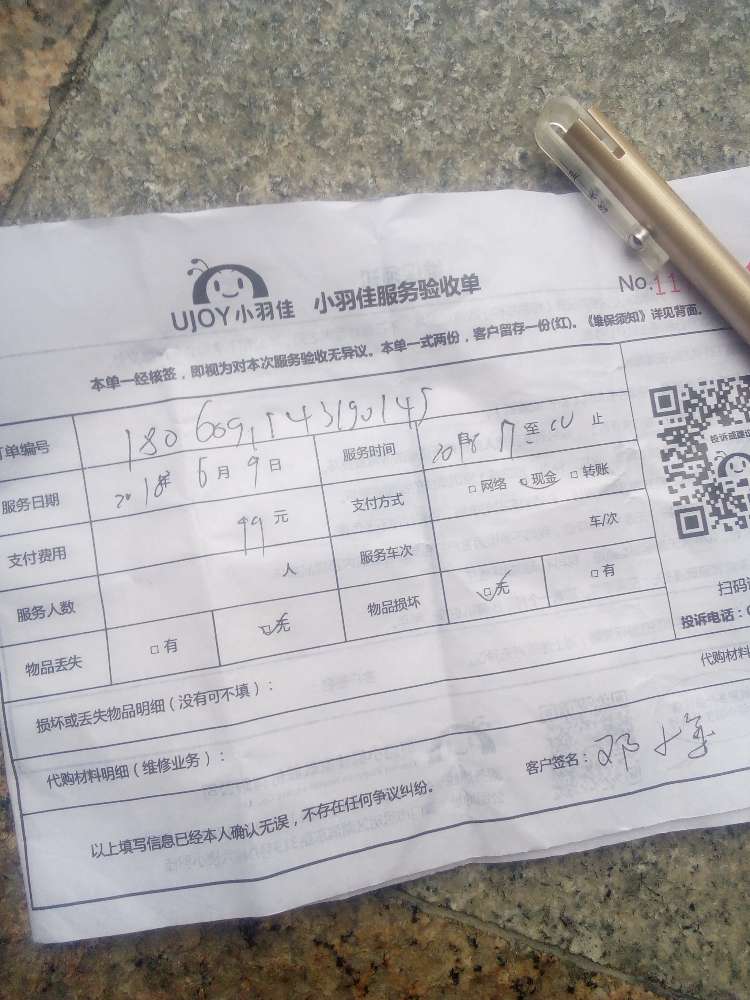 UJOY小羽佳 小羽佳服务验收单 No.11
本单一经核签,即视为对本次服务验收无异议。本单一式两份,客户留存一份(红)。《维保须知》详见背面。
订单编号 1806091543190145
服务日期 2018年6月9日 服务时间 至 止
支付费用 99元 支付方式 □网络 ☑现金 □转账
服务人数 人 服务车次 车/次
物品丢失 □有 ☑无 物品损坏 ☑无 □有
投诉或建议
扫码
投诉电话:0
损坏或丢失物品明细(没有可不填):
代购材料
代购材料明细(维修业务):
以上填写信息已经本人确认无误,不存在任何争议纠纷。
客户签名:邓